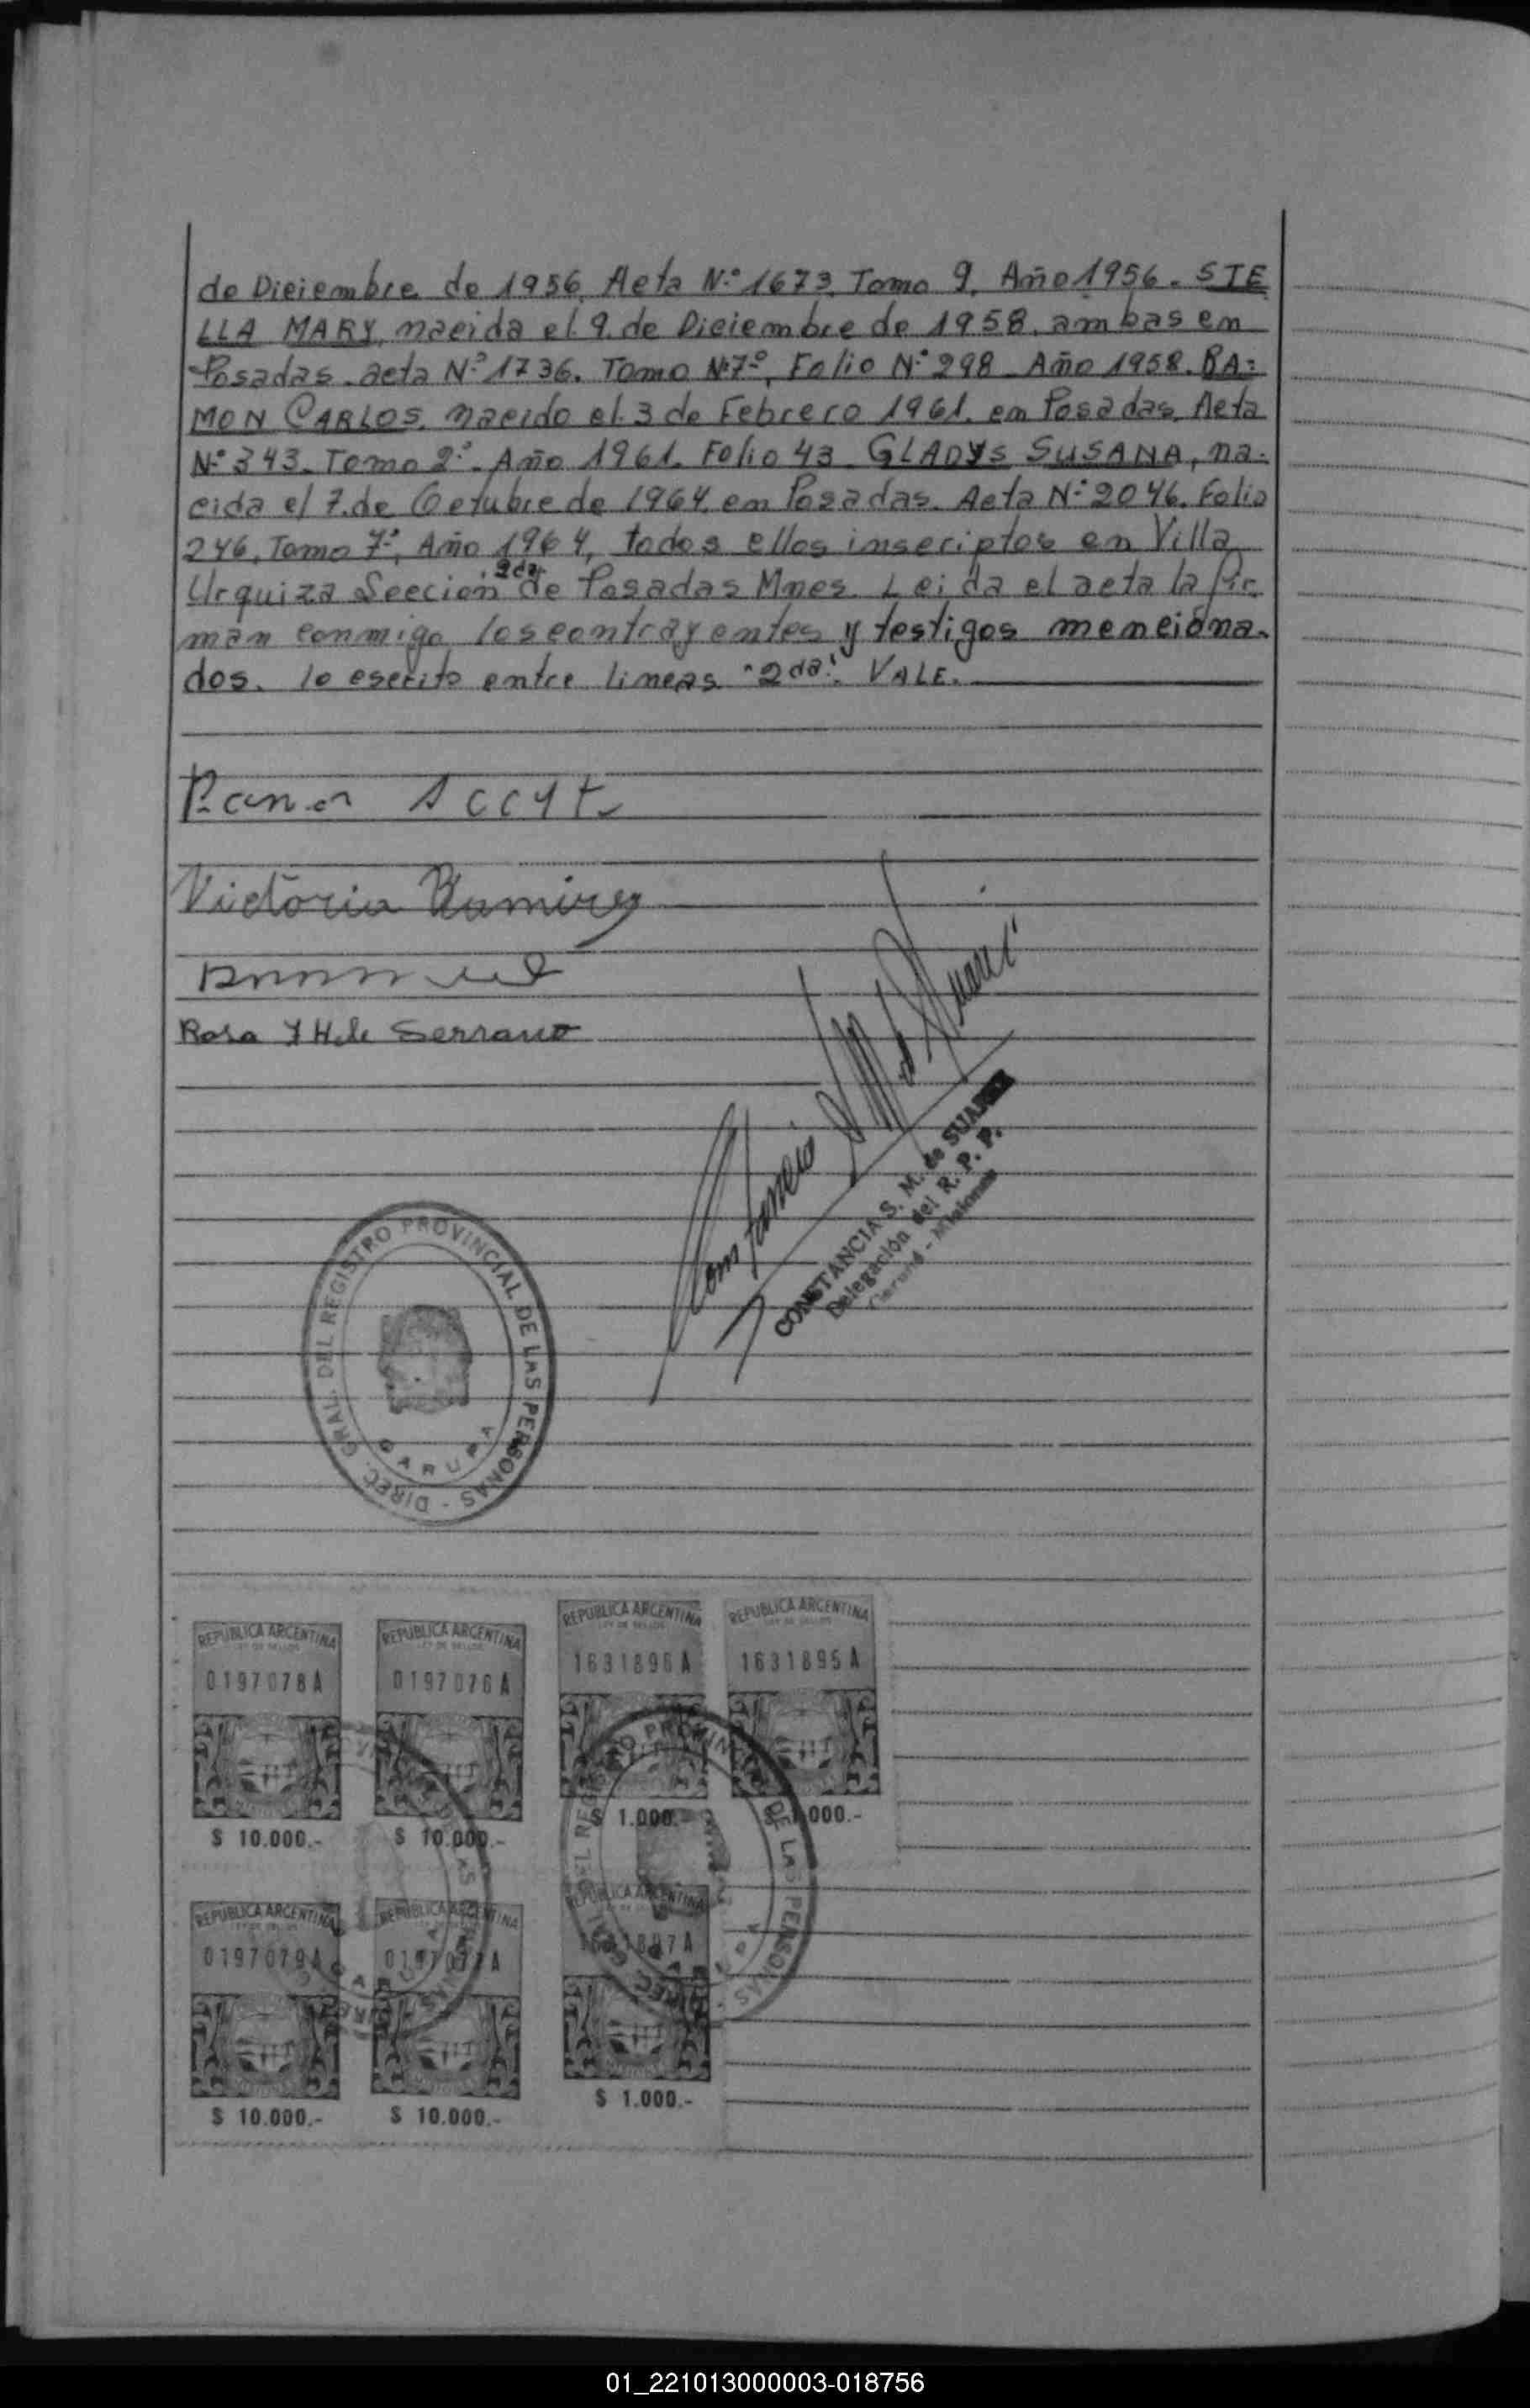 de Diciembre de 1956, Acta N.º 1673. Tomo 9, Año 1956. STE
LLA MARY, nacida el 9. de Diciembre de 1958. ambas en
Posadas. acta N.º 1736. Tomo Nº7º, Folio N.º 298 Año 1958. RA=
MON CARLOS, nacido el 3 de Febrero 1961. en Posadas, Acta
N.º 343. Tomo 2º. Año 1961. Folio 43 GLADYS SUSANA, na-
cida el 7. de Octubre de 1964. en Posadas. Acta N.º 2046. Folio
246, Tomo 7º, Año 1964, todos ellos inscriptos en Villa
2da.
Urquiza Seccion, de Posadas Mnes. Leida el acta la fir-
man conmigo los contrayentes y testigos menciona-
dos. lo escrito entre lineas "2da". VALE.
Ramon
Victoria Ramirez
Rosa Serrano
CONSTANCIA S. M. de SUAREZ
Delegación del R. P. P.
Garupá - Misiones
DIREC. GRAL. DEL REGISTRO PROVINCIAL DE LAS PERSONAS -
GARUPA
REPUBLICA ARGENTINA
LEY DE SELLOS
0197078A
$ 10.000.-
REPUBLICA ARGENTINA
LEY DE SELLOS
0197076A
$ 10.000.-
REPUBLICA ARGENTINA
LEY DE SELLOS
1631896A
$ 1.000.-
REPUBLICA ARGENTINA
LEY DE SELLOS
1631895A
$ 1.000.-
REPUBLICA ARGENTINA
0197079A
$ 10.000.-
REPUBLICA ARGENTINA
0197077A
$ 10.000.-
REPUBLICA ARGENTINA
$ 1.000.-
01_221013000003-018756